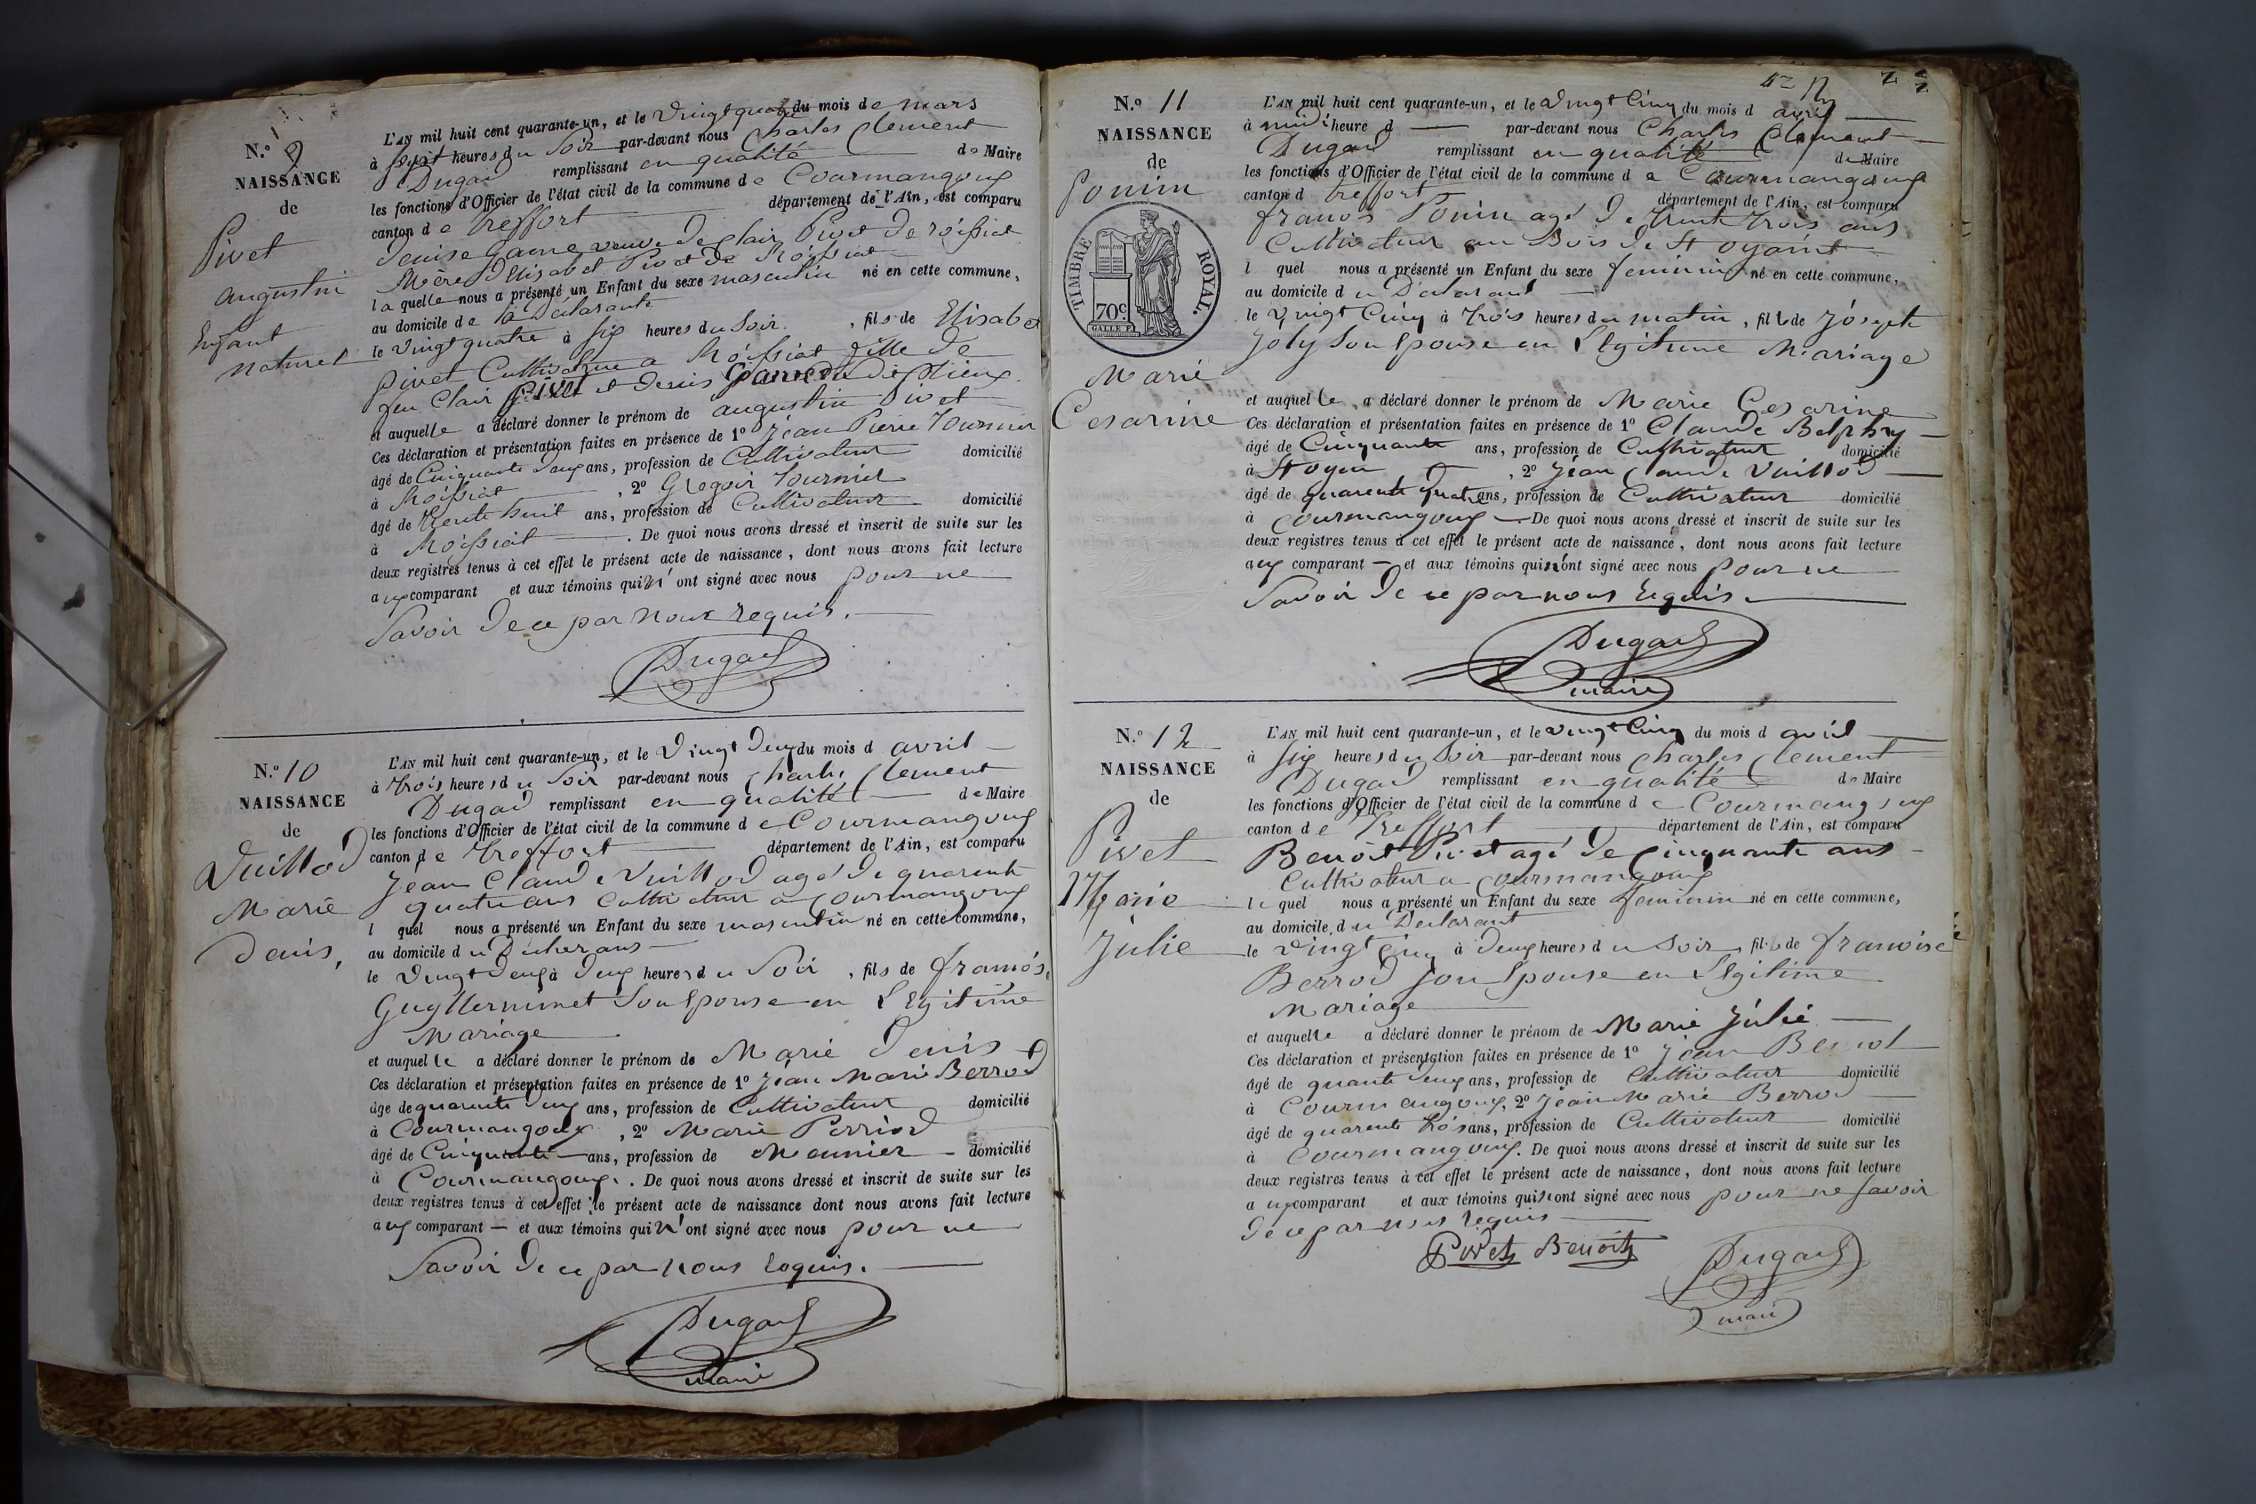 N.o 9
NAISSANCE
de
Pivet
augustin
Enfant
naturel
L'AN mil huit cent quarante-un, et le Vingt quatre du mois de mars
à sept heures du Soir par-devant nous Charles Clement
Dugad remplissant en qualité de Maire
les fonctions d'Officier de l'état civil de la commune de Courmangoux
canton de treffort département de l'Ain, est comparu
denise Game veuve de clair Pivet de roissiat
Mère d'Elisabet Pivet de Roissiat
laquelle nous a présenté un Enfant du sexe masculin né en cette commune,
au domicile de la Déclarante
le vingt quatre à six heures du Soir, fils de Elisabet
pivet Cultivatrice a Roissiat fille de
feu Clair pivet et denise Game
et auquelle a déclaré donner le prénom de augustin Pivet
Ces déclaration et présentation faites en présence de 1o Jean Pierre Tournier
âgé de Cinquante deux ans, profession de Cultivateur domicilié
à Roissiat, 2o Gregoir Tournier
âgé de trente huit ans, profession de Cultivateur domicilié
à Roissiat. De quoi nous avons dressé et inscrit de suite sur les
deux registres tenus à cet effet le présent acte de naissance, dont nous avons fait lecture
aux comparant et aux témoins qui n'ont signé avec nous pour ne
Savoir de ce par nous requis.
Dugad
N.o 10
NAISSANCE
de
Vuillod
Marie
Denis,
L'AN mil huit cent quarante-un, et le Vingt Deux du mois d avril
à trois heures du Soir par-devant nous Charles Clement
Dugad remplissant en qualité de Maire
les fonctions d'Officier de l'état civil de la commune de Courmangoux
canton de treffort département de l'Ain, est comparu
Jean Claude Vuillod agé de quarente
quatre ans Cultivateur a Courmangoux
l quel nous a présenté un Enfant du sexe masculin né en cette commune,
au domicile du Déclarans
le Vingt Deux à Deux heures du Soir, fils de françoise
Guyllerminet Son Epouse en Légitime
Mariage
et auquel le a déclaré donner le prénom de Marie Denis
Ces déclaration et présentation faites en présence de 1o Jean Marie Berrod
âgé de quarente Deux ans, profession de Cultivateur domicilié
à Courmangoux, 2o Marie Perriod
âgé de Cinquante ans, profession de Meunier domicilié
à Courmangoux. De quoi nous avons dressé et inscrit de suite sur les
deux registres tenus à cet effet le présent acte de naissance dont nous avons fait lecture
aux comparant et aux témoins qui n'ont signé avec nous pour ne
Savoir de ce par nous requis.
Dugad
maire
N.o 11
NAISSANCE
de
Ponin
TIMBRE ROYAL.
70c
Marie
Cesarine
L'AN mil huit cent quarante-un, et le Vingt Cinq du mois d avril
à midi heure d par-devant nous Charles Clement
Dugad remplissant en qualité de Maire
les fonctions d'Officier de l'état civil de la commune de Courmangoux
canton d treffort département de l'Ain, est comparu
franços Ponin agé de trente trois ans
Cultivateur au Bois de St oyant
l quel nous a présenté un Enfant du sexe feminin né en cette commune,
au domicile du Déclarant
le vingt Cinq à trois heures du matin, fille de Joseph
Joly Son Epouse en Légitime Mariage
et auquel le a déclaré donner le prénom de Marie Cesarine
Ces déclaration et présentation faites en présence de 1o Claude
âgé de Cinquante ans, profession de Cultivateur domicilié
à St oyen, 2o Jean Claude Vuillod
âgé de quarente quatre ans, profession de Cultivateur domicilié
à Courmangoux De quoi nous avons dressé et inscrit de suite sur les
deux registres tenus à cet effet le présent acte de naissance, dont nous avons fait lecture
aux comparant et aux témoins qui n'ont signé avec nous pour ne
Savoir de ce par nous requis.
Dugad
maire
N.o 12
NAISSANCE
de
Pivet
Marie
Julie
L'AN mil huit cent quarante-un, et le vingt Cinq du mois d avril
à six heures du Soir par-devant nous Charles Clement
Dugad remplissant en qualité de Maire
les fonctions d'Officier de l'état civil de la commune de Courmangoux
canton de Treffort département de l'Ain, est comparu
Benoit Pivet agé de Cinquante ans
Cultivateur a Courmangoux
le quel nous a présenté un Enfant du sexe feminin né en cette commune,
au domicile du Declarant
le vingt Cinq à deux heures du Soir, fille de francoise
Berrod Son Epouse en Légitime
Mariage
et auquelle a déclaré donner le prénom de Marie Julie
Ces déclaration et présentation faites en présence de 1o Jean
âgé de quante Deux ans, profession de Cultivateur domicilié
à Courmangoux, 2o Jean Marie Berrod
âgé de quarente trois ans, profession de Cultivateur domicilié
à Courmangoux. De quoi nous avons dressé et inscrit de suite sur les
deux registres tenus à cet effet le présent acte de naissance, dont nous avons fait lecture
aux comparant et aux témoins qui n'ont signé avec nous pour ne savoir
de ce par nous requis
Pivet Benoit
Dugad
maire